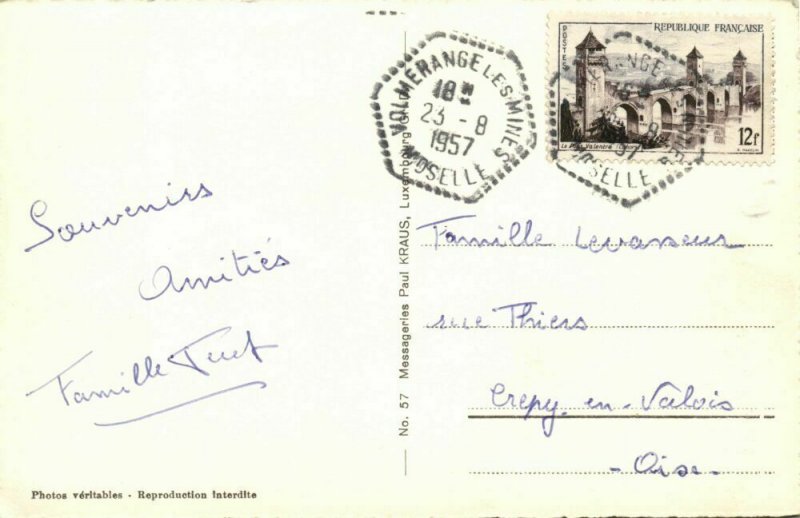 Souvenirs
Amitiés
Famille
Photos véritables - Reproduction interdite
No. 57 Messageries Paul KRAUS, Luxembourg
VOLMERANGE-LES-MINES
18H
23 - 8
1957
MOSELLE
POSTES
RÉPUBLIQUE FRANÇAISE
12f
MOSELLE
Famille Levasseur
rue Thiers
Crepy-en-Valois
- Oise -